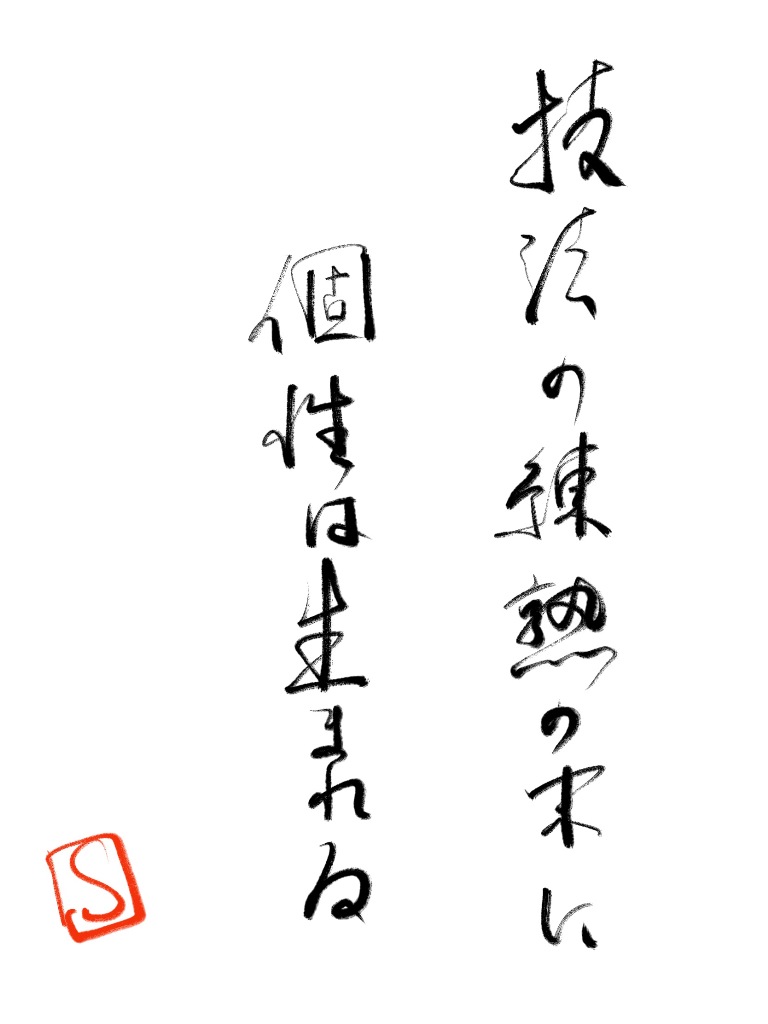 技法の練熟の末に
個性は生まれる
S